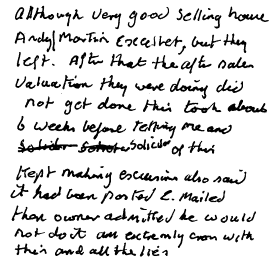 although very good selling house
Andy/Martin Excester, but they
left. After that the after sales
valuation they were doing did
not get done this took about
6 weeks before telling me and
solicitor of this
Kept making excusions also said
it had been posted E. Mailed
then owner admitted he would
not do it am extremly cross with
this and all the lies